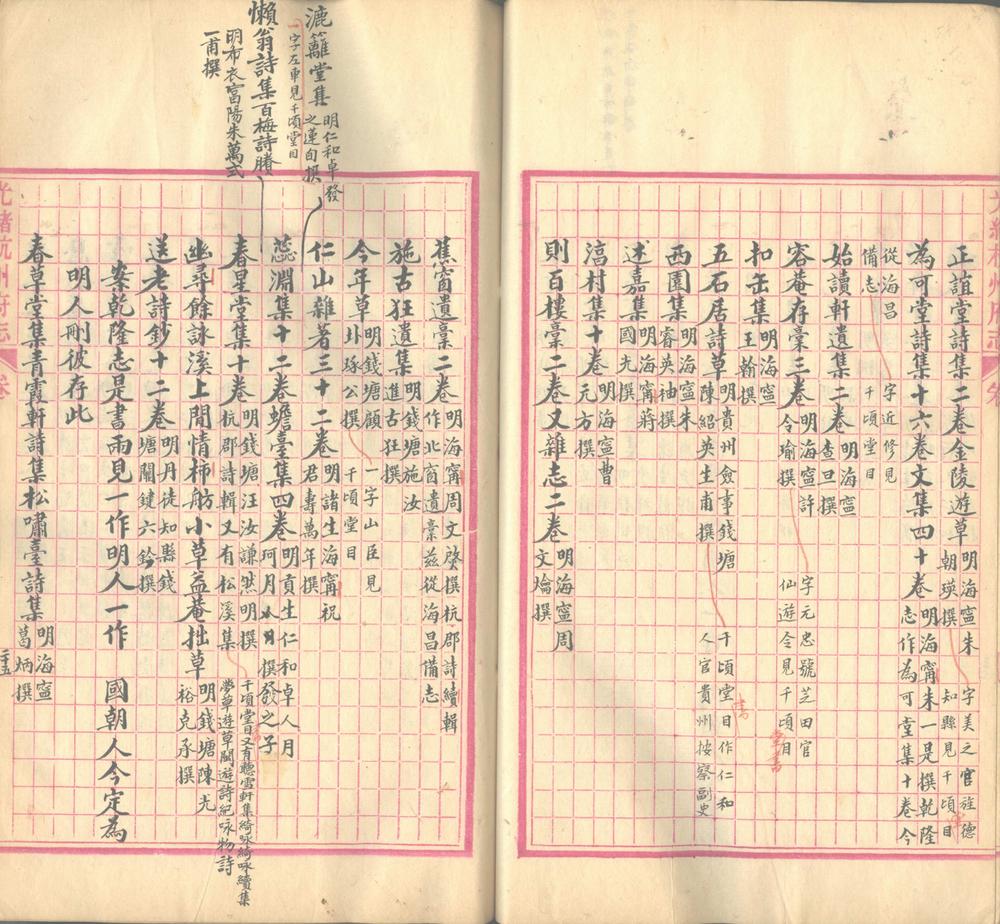 正誼堂詩集二卷金陵遊草明海寧朱朝瑛撰字美之官旌德知縣見千頃目
為可堂詩集十六卷文集四十卷明海甯朱一是撰乾隆志作為可堂集十卷今
從海昌備志字近修見千頃堂目
始讀軒遺集二卷明海寧查旦撰
容菴存稾三卷明海寧許令瑜撰字元忠號芝田官仙遊令見千頃目
扣缶集明海寧王翰撰
五石居詩草明貴州僉事錢塘陳紹英生甫撰千頃堂目作仁和人官貴州按察副史
西園集明海寧朱睿英袖撰
述嘉集明海甯蔣國光撰
淳村集十卷明海寧曹元方撰
則百樓稾二卷又雜志二卷明海寧周文爚撰
蕉窗遺稾二卷明海甯周文棨撰杭郡詩續輯作北窗遺稾茲從海昌備志
施古狂遺集明錢塘施汝進古狂撰
今年草明錢塘顧卦琢公撰一字山臣見千頃堂目
漉籬堂集明仁和卓發之蓮旬撰
一字左車見千頃堂目
仁山雜著三十二卷明諸生海甯祝君壽萬年撰
懶翁詩集百梅詩賸
明布衣富陽朱萬式一甫撰
蕊淵集十二卷蟾臺集四卷明貢生仁和卓人月珂月撰發之子
春星堂集十卷明錢塘汪汝謙然明撰杭郡詩輯又有松溪集千頃堂目又有聽雪軒集綺咏綺咏續集夢草遊草閩遊詩紀咏物詩
幽尋餘詠溪上閒情柿舫小草益菴拙草明錢塘陳尤裕克承撰
送老詩鈔十二卷明丹徒知縣錢塘關鍵六鈐撰
案乾隆志是書兩見一作明人一作 國朝人今定為
明人刪彼存此
春草堂集青霞軒詩集松嘯臺詩集明海寧葛炳撰